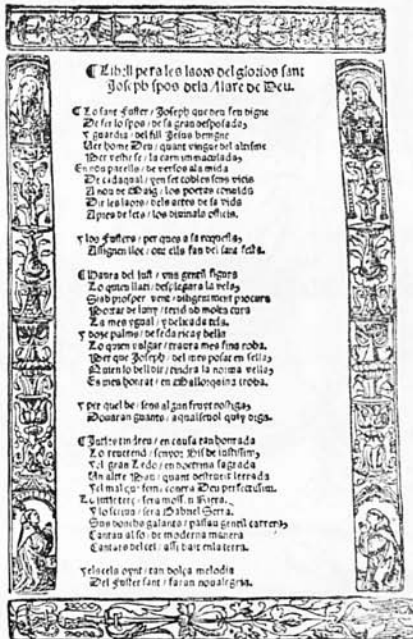 ¶ Libell pera les laors del glorios sant
Joseph spos dela Mare de Deu.
¶ Lo sant fuster / Joseph que deu feu digne
De ser lo spos / de sa gran desposada,
Y guardia / del fill Jesus benigne
Ver home Deu / quant vingue del altisme
Per vestir se / la carn immaculada,
En nou patells / de versos ala mida
De cadaqual / y en set cobles sens vicis
A nou de Maig / los poetas convida
Dir les laors / dels actes de sa vida
Apres de sets / los divinals officis.
Y los fusters / per ques a sa requesta,
Assignen lloc / ont ells fan del sant festa.
¶ Haura del just / una gentil figura
Lo qui en llati / desplegara la vela,
Si ab prosper vent / diligentment procura
Portar de luny / tend ab molta cura
La mes ygual / y delicada tela.
Y dotze palms / de seda rica y bella
Lo qui en vulgar / traura mes fina roba.
Per que Joseph / del mes posat en sella,
Qui en lo bell dir / tindra la norma vella,
Es mes honrat / en Mallorquina troba.
Y per quel be / sens algun fruyt nos tiga,
Donaran guants / a qualsevol qui y diga.
¶ Jutges tindreu / en causa tan honrada
Lo reverend / senyor Bisbe justissim,
Y el gran Ledo / en doctrina sagrada
Un altre Pau / quant destruint lerrada
Y el malgust fem / contra Deu perfectissim.
Lo jutge terç / sera moss. n Pirra.
Y lo scriva / sera Gabriel Serra.
Son boncho galants / passau gentil carrera,
Cantau al so / de moderna manera
Cantars del cel / assi baix en la terra.
Y els cels oynt / tan dolça melodia
Del fuster sant / faran nova alegria.